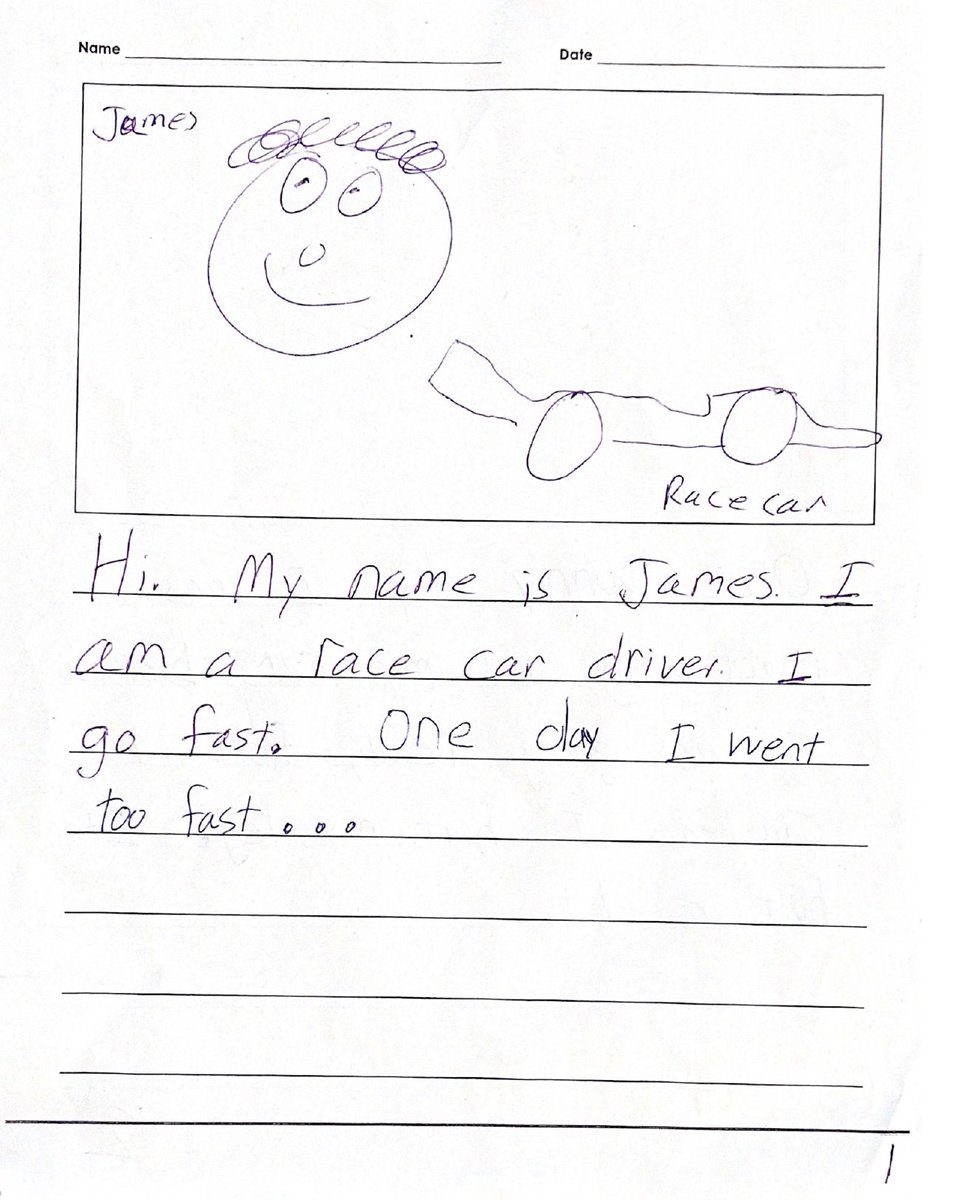 Name Date
James
Race car
Hi. My name is James. I
am a race car driver. I
go fast. One day I went
too fast...
1